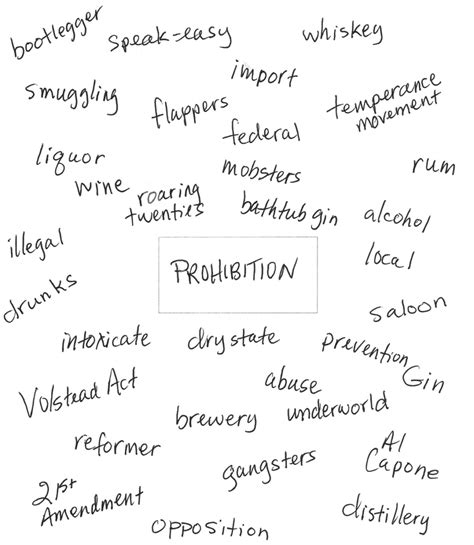 bootlegger
speak-easy
whiskey
import
smuggling
flappers
temperance
movement
federal
liquor
mobsters
rum
wine
roaring
twenties
bathtub gin
alcohol
illegal
PROHIBITION
local
drunks
saloon
intoxicate
dry state
prevention
Gin
Volstead Act
abuse
underworld
brewery
reformer
gangsters
Al
Capone
21st
Amendment
distillery
opposition